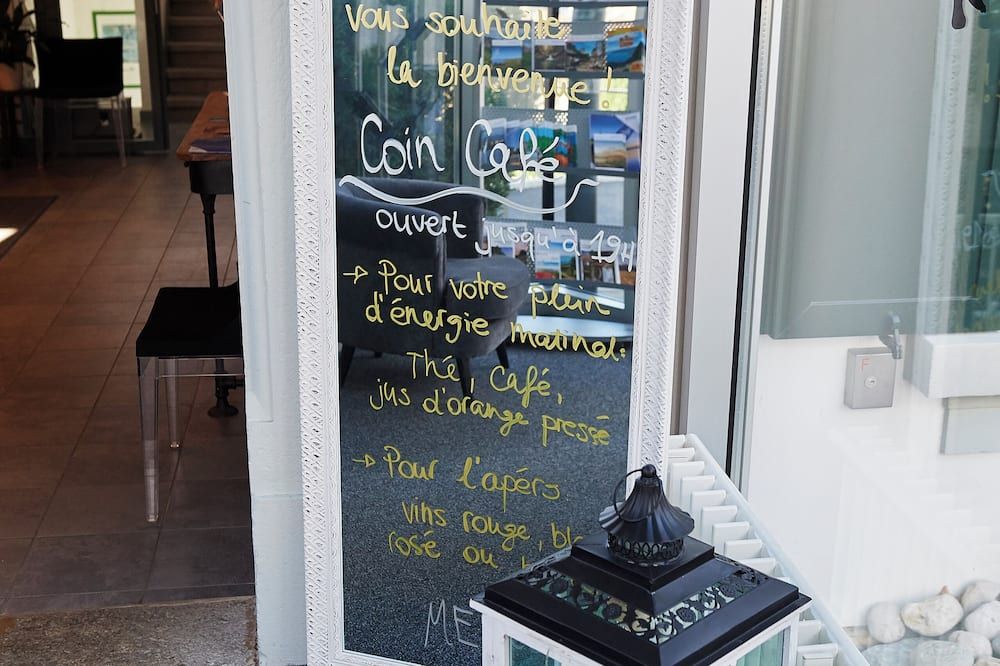 vous souhaite
la bienvenue !
Coin Café
ouvert jusqu'à 19H
→ Pour votre plein
d'énergie matinal:
Thé, Café,
jus d'orange pressé
→ Pour l'apéro
vins rouge,
rosé ou
F